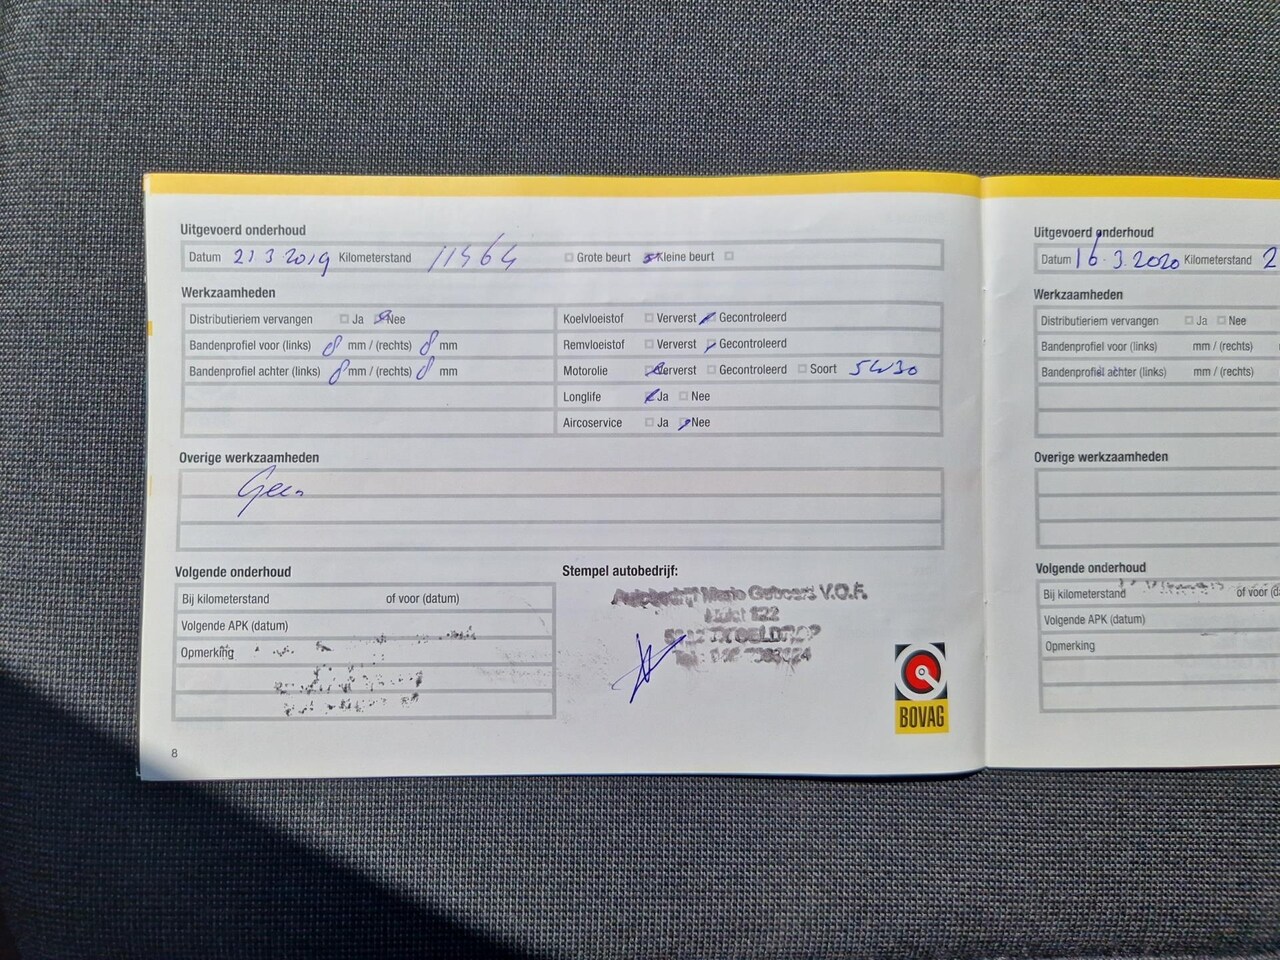 Uitgevoerd onderhoud
Datum 21 3 2019 Kilometerstand 11464 Grote beurt Kleine beurt
Werkzaamheden
Distributieriem vervangen Ja Nee
Bandenprofiel voor (links) 8 mm / (rechts) 8 mm
Bandenprofiel achter (links) 8 mm / (rechts) 8 mm
Koelvloeistof Ververst Gecontroleerd
Remvloeistof Ververst Gecontroleerd
Motorolie Ververst Gecontroleerd Soort 5W30
Longlife Ja Nee
Aircoservice Ja Nee
Overige werkzaamheden
Geen
Volgende onderhoud
Bij kilometerstand of voor (datum)
Volgende APK (datum)
Opmerking
Stempel autobedrijf:
Autobedrijf Mario V.O.F.
122
GELDROP
BOVAG
8
Uitgevoerd onderhoud
Datum 16. 3. 2020 Kilometerstand 2
Werkzaamheden
Distributieriem vervangen Ja Nee
Bandenprofiel voor (links) mm / (rechts)
Bandenprofiel achter (links) mm / (rechts)
Overige werkzaamheden
Volgende onderhoud
Bij kilometerstand of voor (da
Volgende APK (datum)
Opmerking